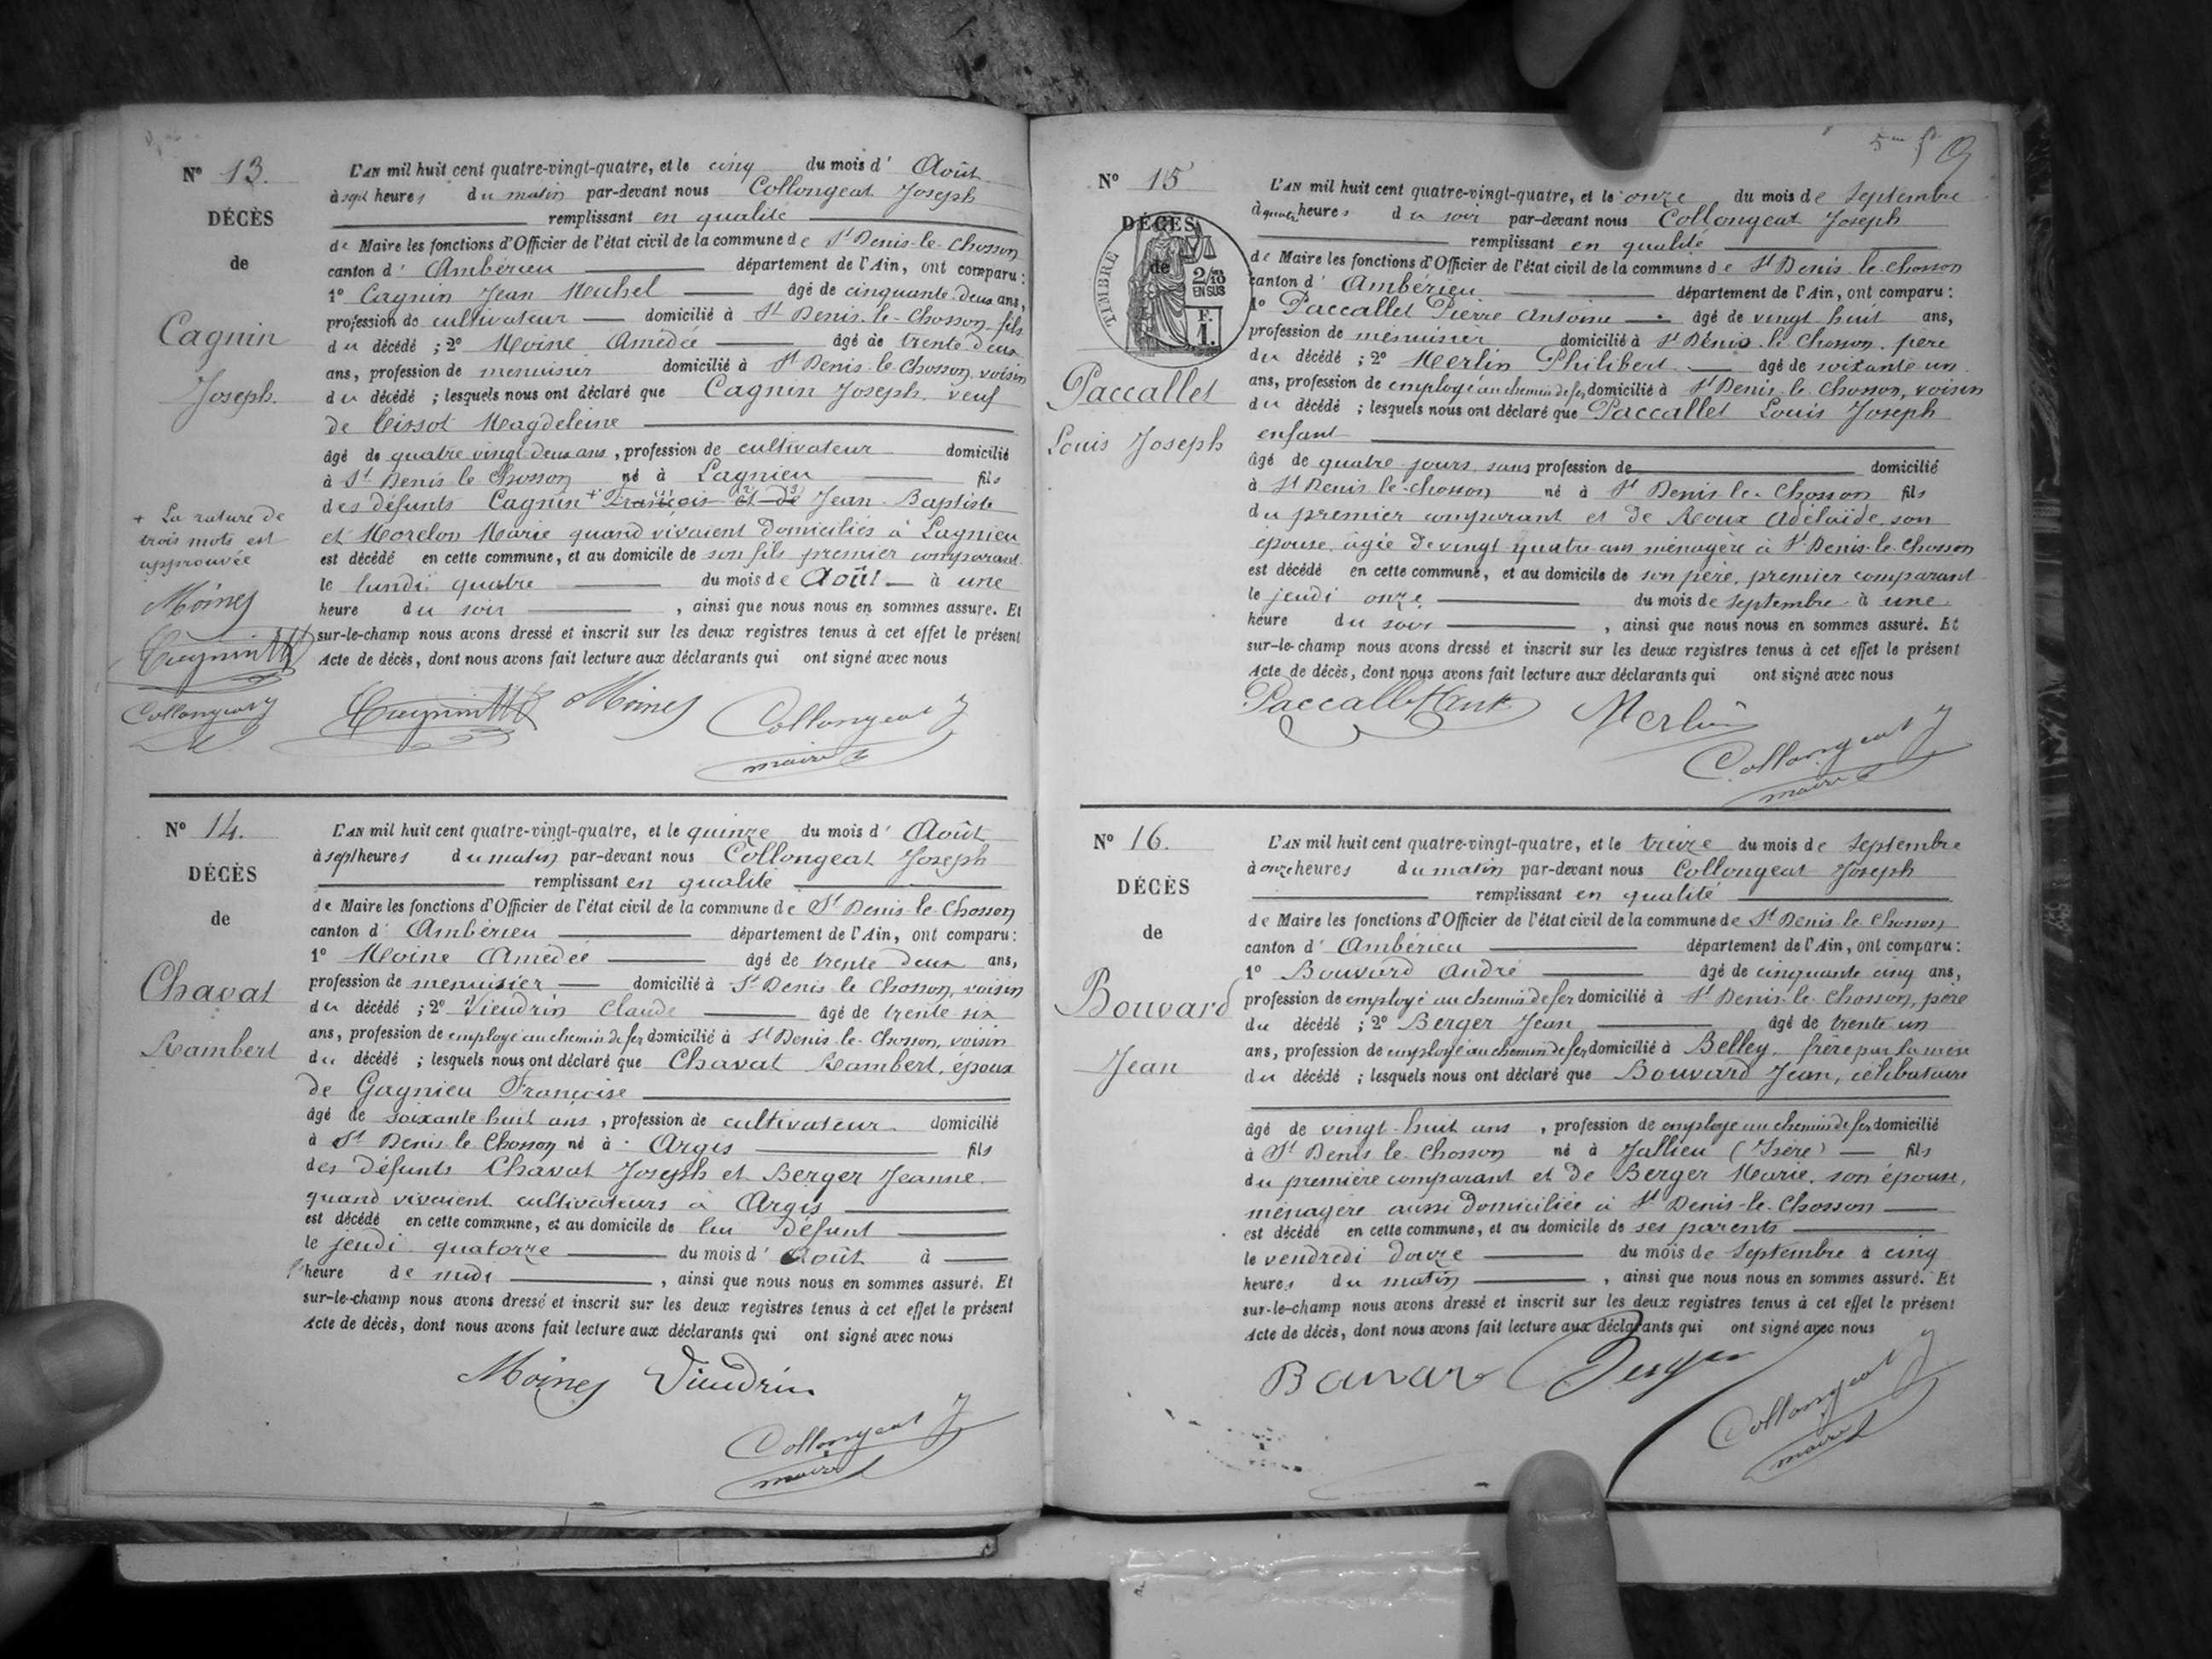 Nº 13.
DÉCÈS
de
Cagnin
Joseph.
+ La rature de
trois mots est
approuvée
Moine
Collongeat J
L'AN mil huit cent quatre-vingt-quatre, et le cinq du mois d' Août
à sept heures du matin par-devant nous Collongeat Joseph
remplissant en qualité
de Maire les fonctions d'Officier de l'état civil de la commune de St Denis-le-Chosson
canton d' Ambérieu département de l'Ain, ont comparu :
1º Cagnin Jean Michel âgé de cinquante deux ans,
profession de cultivateur domicilié à St Denis-le-Chosson fils
du décédé ; 2º Moine Amédée âgé de trente deux
ans, profession de menuisier domicilié à St Denis-le-Chosson, voisin
du décédé ; lesquels nous ont déclaré que Cagnin Joseph, veuf
de Tissot Magdeleine
âgé de quatre vingt deux ans, profession de cultivateur domicilié
à St Denis le Chosson né à Lagnieu fils
des défunts Cagnin + François et de Jean-Baptiste
et Morelon Marie quand vivaient domiciliés à Lagnieu
est décédé en cette commune, et au domicile de son fils premier comparant
le lundi quatre du mois de Août à une
heure du soir , ainsi que nous nous en sommes assuré. Et
sur-le-champ nous avons dressé et inscrit sur les deux registres tenus à cet effet le présent
Acte de décès, dont nous avons fait lecture aux déclarants qui ont signé avec nous
Moine Collongeat J
maire
Nº 14.
DÉCÈS
de
Chavat
Rambert
L'AN mil huit cent quatre-vingt-quatre, et le quinze du mois d' Août
à sept heures du matin par-devant nous Collongeat Joseph
remplissant en qualité
de Maire les fonctions d'Officier de l'état civil de la commune de St Denis-le-Chosson
canton d' Ambérieu département de l'Ain, ont comparu :
1º Moine Amédée âgé de trente deux ans,
profession de menuisier domicilié à St Denis le Chosson, voisin
du décédé ; 2º Vieudrin Claude âgé de trente six
ans, profession de employé au chemin de fer domicilié à St Denis-le-Chosson, voisin
du décédé ; lesquels nous ont déclaré que Chavat Rambert, époux
de Gagnieu Françoise
âgé de soixante huit ans, profession de cultivateur domicilié
à St Denis le Chosson né à Argis fils
des défunts Chavat Joseph et Berger Jeanne
quand vivaient cultivateurs à Argis
est décédé en cette commune, et au domicile de lui défunt
le jeudi quatorze du mois d' Août à
l'heure de midi , ainsi que nous nous en sommes assuré. Et
sur-le-champ nous avons dressé et inscrit sur les deux registres tenus à cet effet le présent
Acte de décès, dont nous avons fait lecture aux déclarants qui ont signé avec nous
Moine Vieudrin
Collongeat J
maire
Nº 15
DÉCÈS
de
TIMBRE
2/10
EN SUS
F.
1.
Paccallet
Louis Joseph
L'AN mil huit cent quatre-vingt-quatre, et le onze du mois de Septembre
à quatre heures du soir par-devant nous Collongeat Joseph
remplissant en qualité
de Maire les fonctions d'Officier de l'état civil de la commune de St Denis-le-Chosson
canton d' Ambérieu département de l'Ain, ont comparu :
1º Paccallet Pierre Antoine âgé de vingt huit ans,
profession de menuisier domicilié à St Denis le Chosson, père
du décédé ; 2º Merlin Philibert âgé de soixante un
ans, profession de employé au chemin de fer domicilié à St Denis le Chosson, voisin
du décédé ; lesquels nous ont déclaré que Paccallet Louis Joseph
enfant
âgé de quatre jours, sans profession de domicilié
à St Denis le-Chosson né à St Denis le-Chosson fils
du premier comparant et de Roux Adélaïde, son
épouse, âgée de vingt-quatre ans ménagère à St Denis-le-Chosson
est décédé en cette commune, et au domicile de son père, premier comparant
le jeudi onze du mois de Septembre à une
heure du soir , ainsi que nous nous en sommes assuré. Et
sur-le-champ nous avons dressé et inscrit sur les deux registres tenus à cet effet le présent
Acte de décès, dont nous avons fait lecture aux déclarants qui ont signé avec nous
Merlin
Collongeat J
maire
Nº 16.
DÉCÈS
de
Bouvard
Jean
L'AN mil huit cent quatre-vingt-quatre, et le treize du mois de Septembre
à onze heures du matin par-devant nous Collongeat Joseph
remplissant en qualité
de Maire les fonctions d'Officier de l'état civil de la commune de St Denis le Chosson
canton d' Ambérieu département de l'Ain, ont comparu :
1º Bouvard André âgé de cinquante cinq ans,
profession de employé au chemin de fer domicilié à St Denis-le-Chosson, père
du décédé ; 2º Berger Jean âgé de trente un
ans, profession de employé au chemin de fer domicilié à Belley, frère par la mère
du décédé ; lesquels nous ont déclaré que Bouvard Jean, célibataire
âgé de vingt-huit ans , profession de employé au chemin de fer domicilié
à St Denis le Chosson né à Jallieu (Isère) fils
du première comparant et de Berger Marie, son épouse,
ménagère aussi domiciliée à St Denis-le-Chosson
est décédé en cette commune, et au domicile de ses parents
le vendredi douze du mois de Septembre à cinq
heures du matin , ainsi que nous nous en sommes assuré. Et
sur-le-champ nous avons dressé et inscrit sur les deux registres tenus à cet effet le présent
Acte de décès, dont nous avons fait lecture aux déclarants qui ont signé avec nous
Berger
Collongeat J
maire